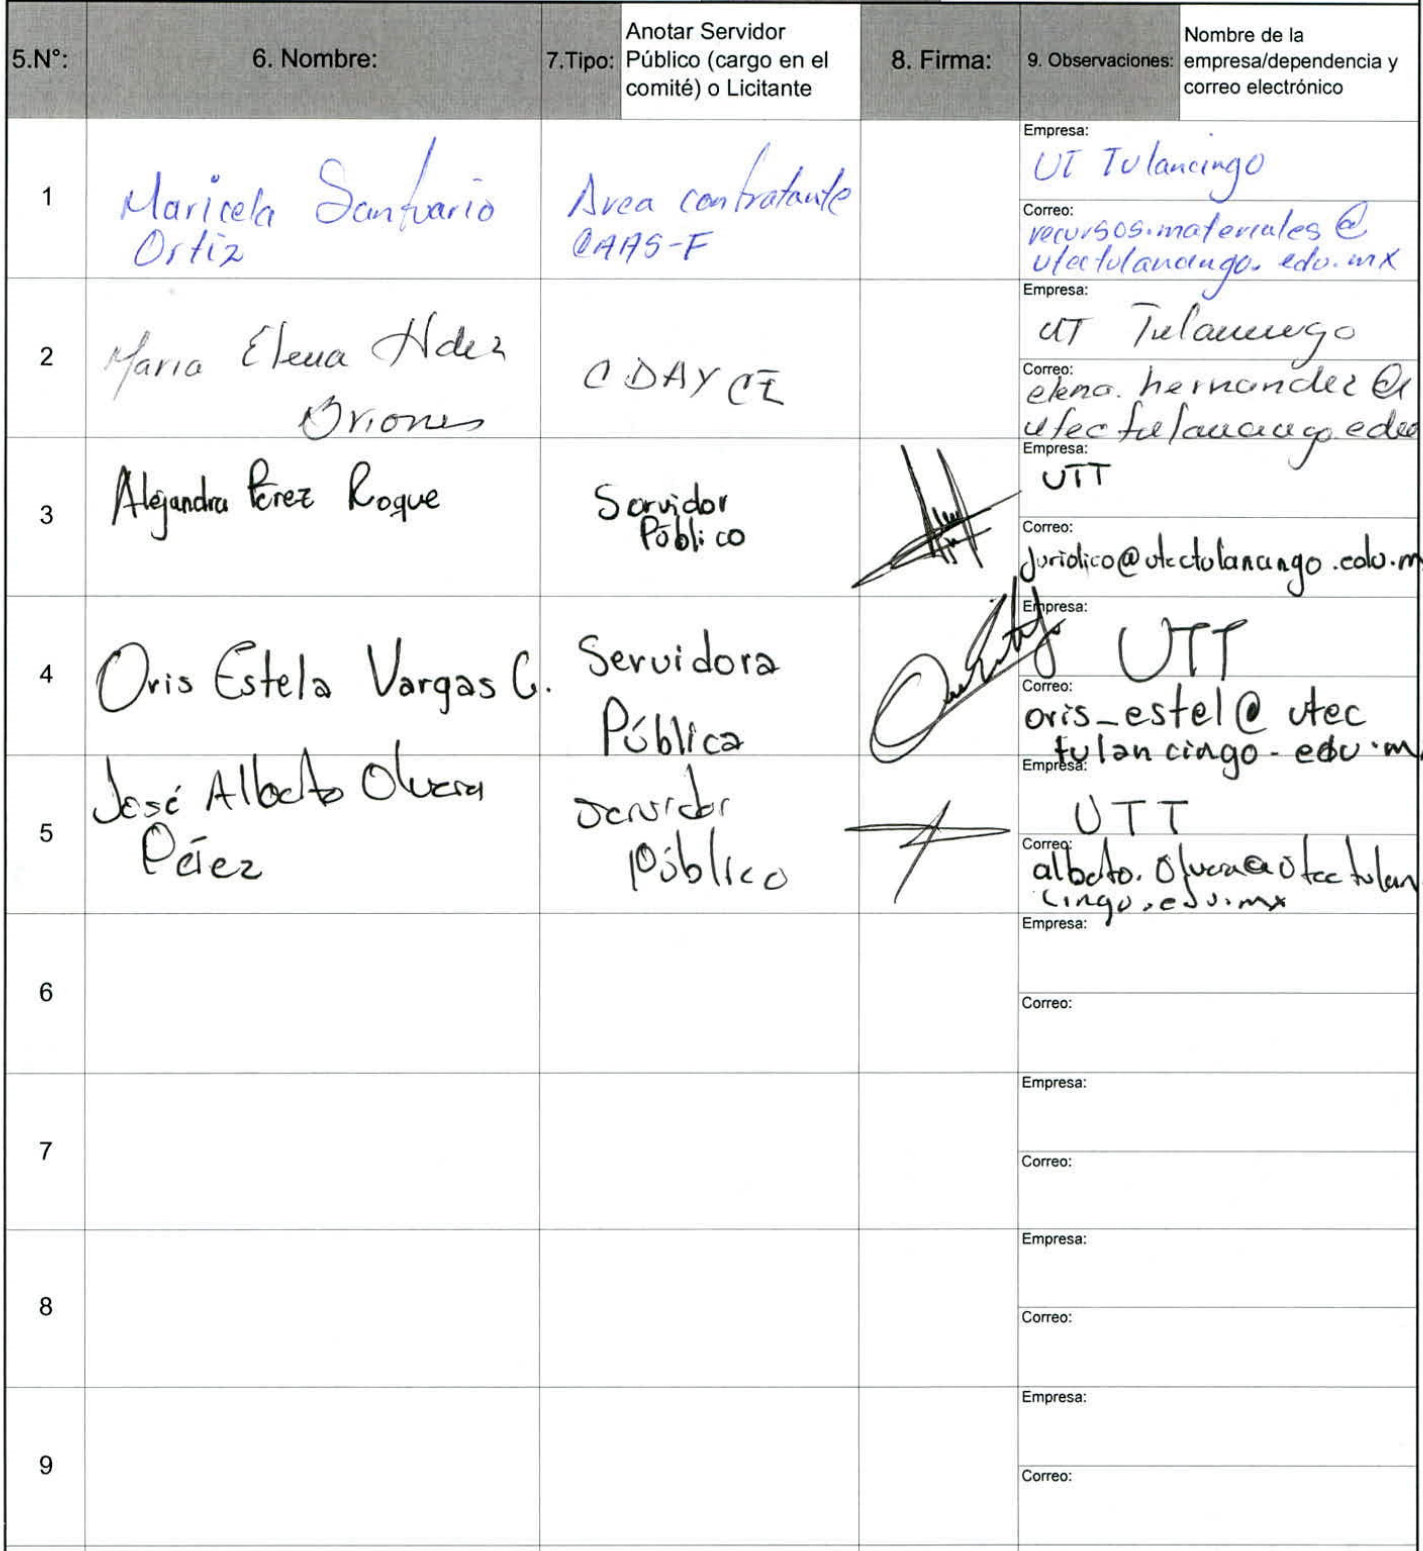 5.N°:
6. Nombre:
7.Tipo:
Anotar Servidor
Público (cargo en el
comité) o Licitante
8. Firma:
9. Observaciones:
Nombre de la
empresa/dependencia y
correo electrónico
1
Maricela Santuario
Ortiz
Area contratante
CAAS-F
Empresa:
UT Tulancingo
Correo:
recursos.materiales@
utectulancingo.edu.mx
2
Maria Elena Hdez
Briones
CDAYCI
Empresa:
UT Tulancingo
Correo:
elena.hernandez@
utectulancingo.edu
3
Alejandra Pérez Roque
Servidor
Público
Empresa:
UTT
Correo:
juridico@utectulancingo.edu.m
4
Oris Estela Vargas G.
Servidora
Pública
Empresa:
UTT
Correo:
oris_estel@utec
tulancingo.edu.m
5
José Alberto Olvera
Pérez
Servidor
Público
Empresa:
UTT
Correo:
alberto.olvera@utectulan
cingo.edu.mx
6
Empresa:
Correo:
7
Empresa:
Correo:
8
Empresa:
Correo:
9
Empresa:
Correo: